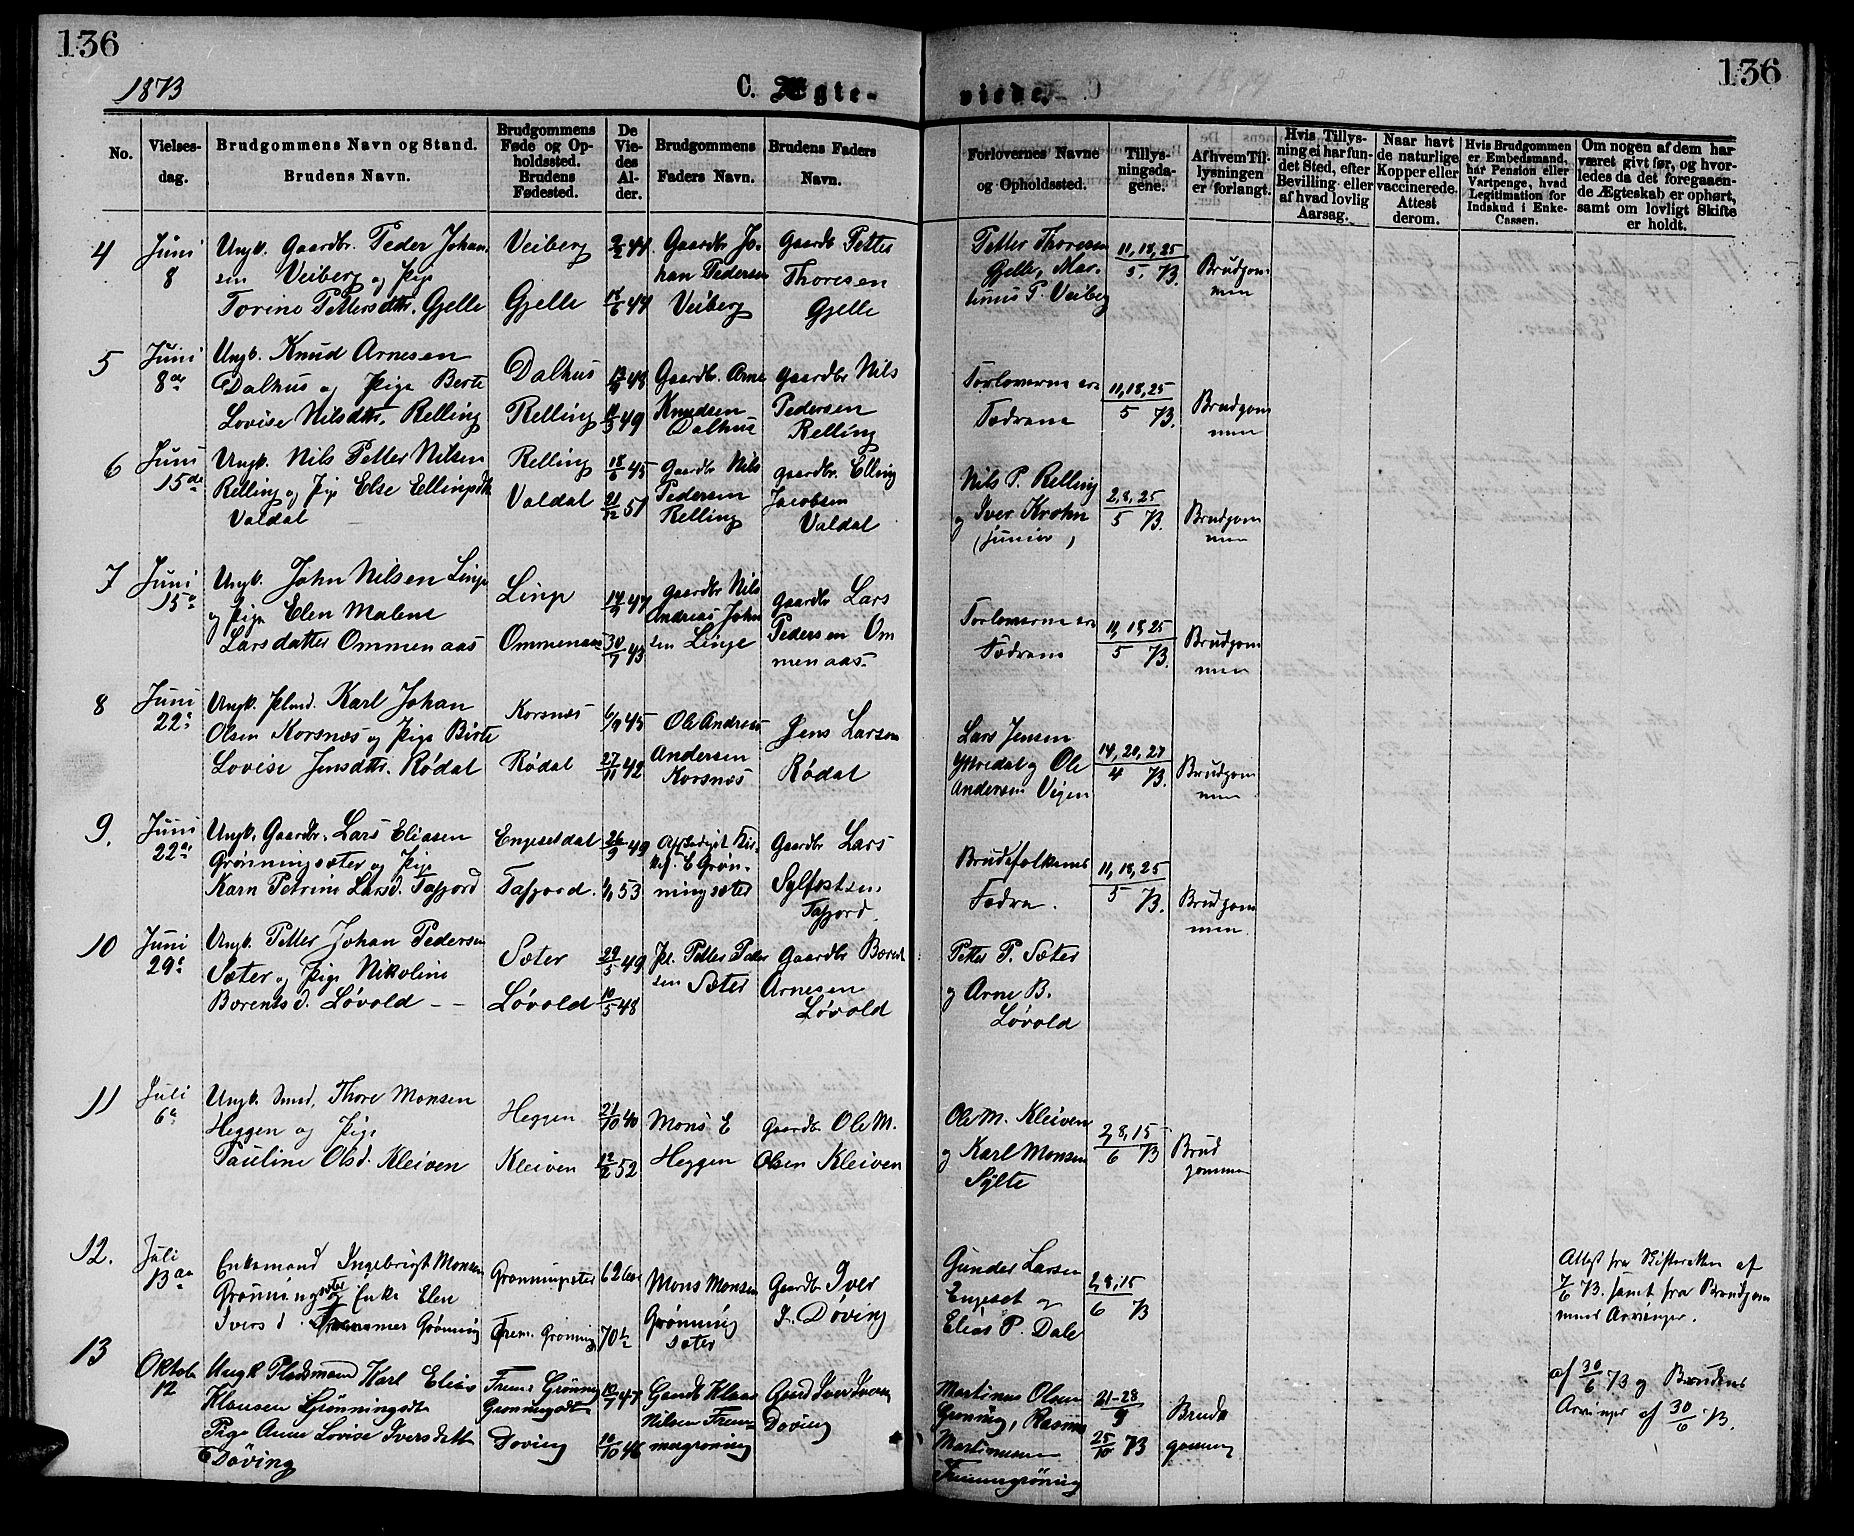 136
136
1873
C. Ægte-
viede.
No.
Vielses-
dag.
Brudgommens Navn og Stand.
Brudens Navn.
Brudgommens
Føde og Op-
holdssted.
Brudens
Fødested.
De
Vie-
des
Al-
der.
Brudgommens
Faders Navn.
Brudens Faders
Navn.
Forlovernes Navne
og Opholdssted.
Tillys-
ningsda-
gene.
Af hvem Til-
lysningen
er forlangt.
Hvis Tillys-
ning ei har fun-
det Sted, efter
Bevilling eller
af hvad lovlig
Aarsag.
Naar havt
de naturlige
Kopper eller
vaccinerede.
Attest
derom.
Hvis Brudgommen
er Embedsmand,
har Pension eller
Vartpenge, hvad
Legitimation for
Indskud i Enke-
Cassen.
Om nogen af dem har
været givt før, og hvor-
ledes da det foregaaen-
de Ægteskab er ophørt,
samt om lovligt Skifte
er holdt.
4
Juni
8
Ungk. Gaardbr. Peder Johan
sen Veiberg og Pige
Torine Pettersdttr. Gjelle
Veiberg
Gjelle
44
44
Gaardbr Jo-
han Pedersen
Veiberg
Gaardb Petter
Thoresen
Gjelle
Petter Thoresen
Gjelle, Mar-
tinus P. Veiberg
11, 18, 25
5. 73.
Brudgom
men
5
Juni
8de
Ungk. Knud Arnesen
Dalhus og Pige Berte
Lovise Nilsdttr. Relling
Dalhus
Relling
48
49
Gaardbr. Arne
Knudsen
Dalhus
Gaardbr Nils
Pedersen
Relling
Forloverne ere
Fædrene
11, 18, 25
5 73.
Brudgom
men
6
Juni
15de
Ungk. Nils Petter Nilsen
Relling og Pige Else Ellingsdtt
Valdal
Relling
Valdal
18/6 45
21/12 51
Gaardbr Nils
Pedersen
Relling
gaardbr. Elling
Jacobsen
Valdal
Nils P. Relling
og Iver Krohn
(junior)
2, 8, 25
5 73.
Brudgom
men
7
Juni
15
Ungk. John Nilsen Linge
og Pige Elen Malene
Larsdatter Ommenaas
Linge
Ommenaas
47
30/7 43
gaardbr Nils
Andreas John
sen Linge
gaardbr Lars
Pedersen Om
menaas.
Forloverne ere
Fædrene
11, 18, 25
5 73.
Brudgom
men
8
Juni
22
Ungk. Plmd. Karl Johan
Olsen Korsnæs og Pige Birte
Lovise Jensdttr. Rødal
Korsnæs
Rødal
6/9 45
27/11 42
Ole Andreas
Andersen
Korsnæs
Jens Larsen
Rødal
Lars Jensen
Ytredal og Ole
Andersen Vigen
14, 20, 27
4 73.
Brudgom
men
9.
Juni
22
Ungk. Gaardbr. Lars Eliasen
Grønningsæter og Pige
Karn Petrine Larsd. Tafjord
Engesetdal
Tafjord.
26/9 49
53
E Grøn-
ningsæter
Gaardbr Lars
Sylfestsen
Tafjord
Brudefolkenes
Fædre.
11, 18, 25
5 73.
Brudgom
men.
10
Juni
29
Ungk. Petter Johan Pedersen
Sæter og Pige Nikoline
Berentsd. Løvold
Sæter
Løvold
29/5 49
10/5 48
Pl. Petter Peder
sen Sæter
Gaardbr Berent
Arnesen
Løvold
Petter P. Sæter
og Arne B.
Løvold
11
Juli
6
Ungk. Smed, Thore Monsen
Heggen og Pige
Pauline Olsd. Kleiven
Heggen
Kleiven
21/10 40
12/2 52
Mons E
Heggen
Gaardb. Ole M.
Olsen Kleiven
Ole M. Kleiven
og Karl Monsen
Sylte
2, 8, 15
6 73
Brud
gommen
12.
Juli
13
Enkemand Ingebrigt Monsen
Grønningsæter og Enke Elen
Iversd. Fremmer Grønning
Grønningsæter
Frem. Grønning
62
70
Mons Monsen
Grønning
sæter
Gaardbr Iver
I. Døving
Gunder Larsen
Engeset og
Elias P. Dale
2, 8, 15
6 73
Attest fra Skifteretten af
7/6 73. samt fra Brudgom
mens Arvinger.
af 30/6 73 og Brudens
Arvinger af 30/6 73.
13
Oktobr
12
Ungk Pladsmand Karl Elias
Klausen Grønningsdt
Pige Anne Lovise Iversdatt
Døving
Frem. Grønning
Grønningsdt
Døving
47
10/10 46
Gaardb Klaus
Nilsen Frem
mergrøning
Gaard Iver Iversen
Døving
Martinus Olsen
Grøning, Rasmus
Martinusen
Fremmergrøning
21-28
9
25/10 73
Brud
gommen